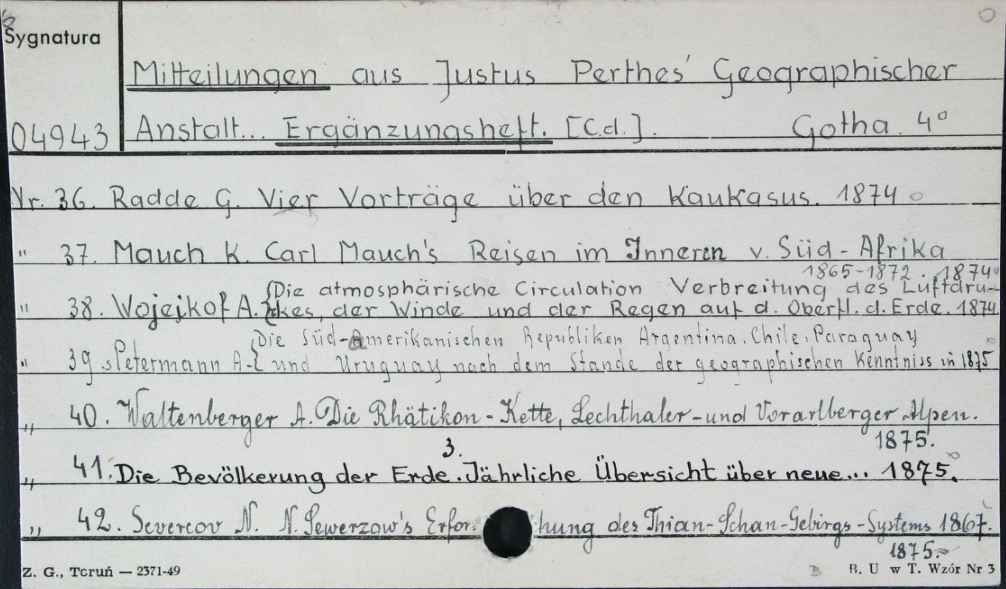 Sygnatura
Mitteilungen aus Justus Perthes' Geographischer
04943 Anstalt... Ergänzungsheft. [C.d.]. Gotha. 4°
Nr. 36. Radde G. Vier Vorträge über den Kaukasus. 1874
" 37. Mauch K. Carl Mauch's Reisen im Inneren v. Süd-Afrika
1865-1872. 1874
Die atmosphärische Circulation Verbreitung des Luftdru-
" 38. Wojejkof A. kes, der Winde und der Regen auf d. Oberfl. d. Erde. 1874
Die Süd-Amerikanischen Republiken Argentina. Chile. Paraguay
" 39. Petermann A. und Uruguay nach dem Stande der geographischen Kenntniss in 1875
" 40. Waltenberger A. Die Rhätikon-Kette, Lechthaler- und Vorarlberger Alpen.
1875.
3.
" 41. Die Bevölkerung der Erde. Jährliche Übersicht über neue... 1875.
" 42. Severcov N. N. Sewerzow's Erfor hung des Thian-Schan-Gebirgs-Systems 1867.
1875.
Z. G., Toruń — 2371-49 B. U w T. Wzór Nr 3